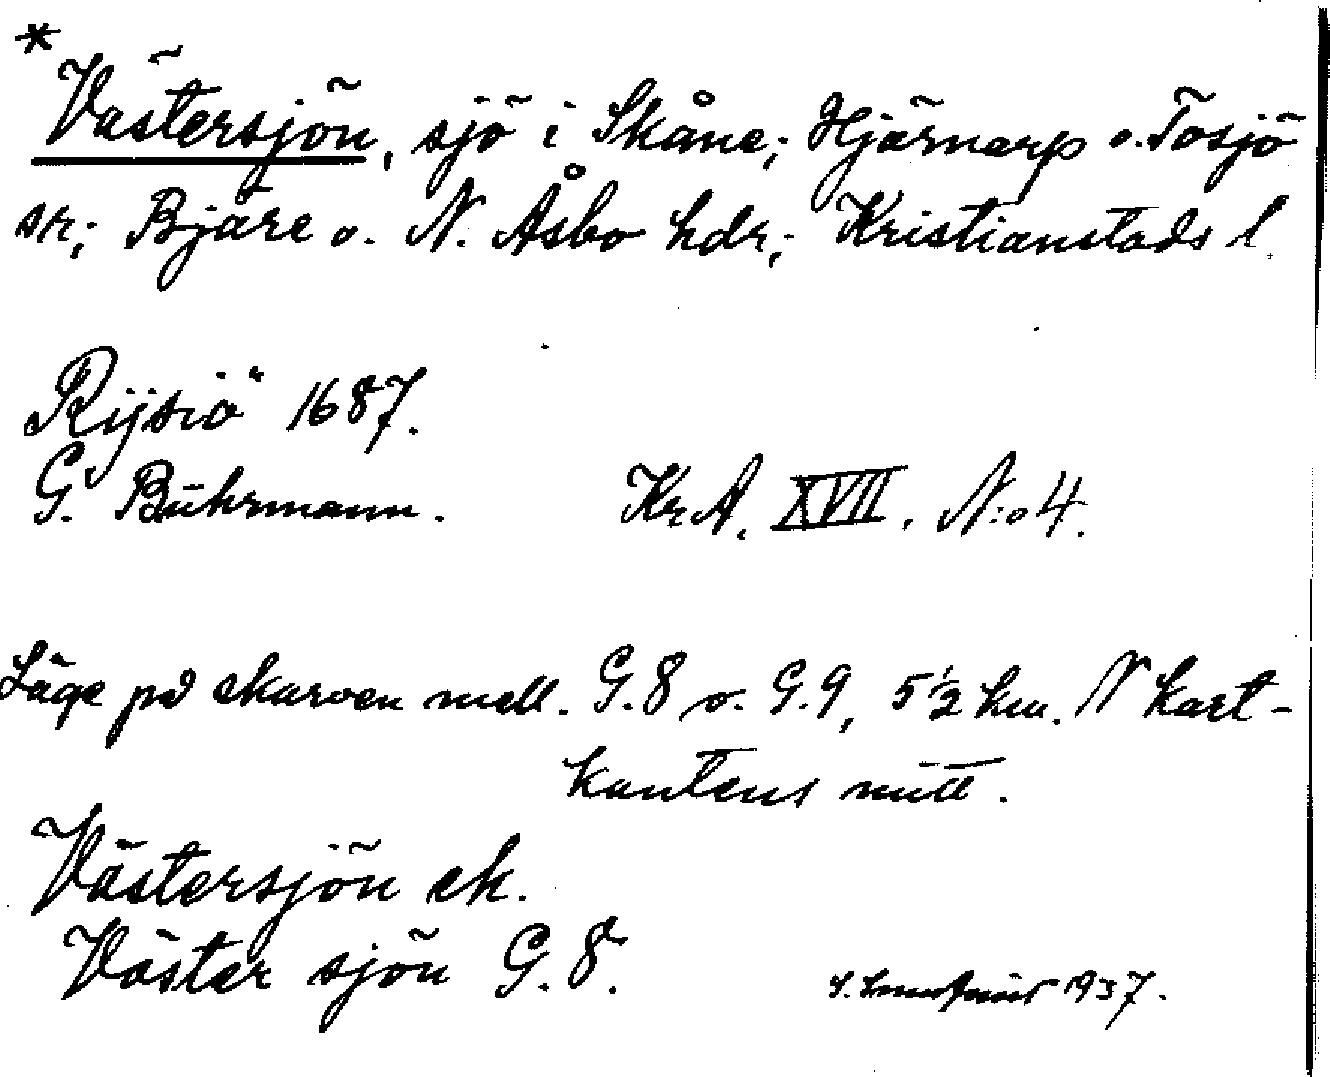 *
Västersjön, sjö i Skåne; Hjärnarp o. Tosjö
sn; Bjäre o. N. Åsbo hdr; Kristianstads l.
Rijsiö 1687.
G. Buhrmann. Kr.A. XVII. N:o 4.
Läge på skarven mell. G.8 o. G.9, 5½ km. N kart-
kantens mitt.
Västersjön ek.
Väster sjön G.8.
1937.